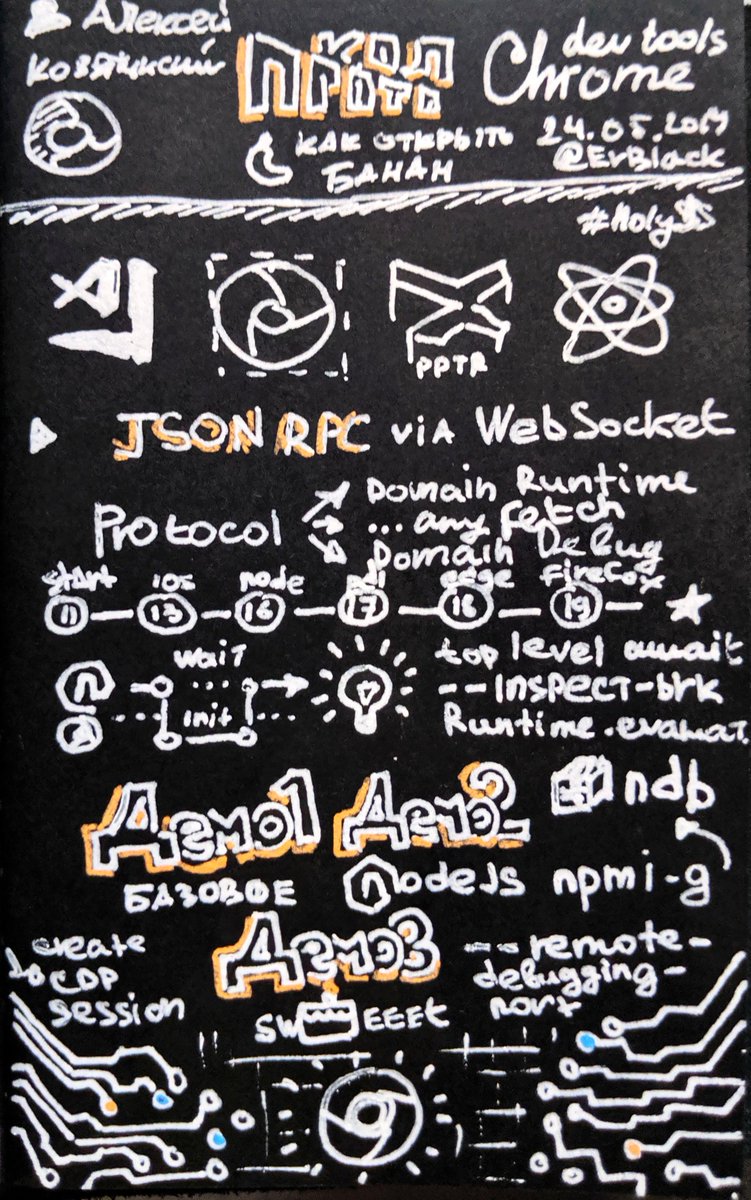 Алексей
Козяцинский
ПРОТО
КОЛ
dev tools
Chrome
КАК ОТКРЫТЬ
БАНАН
24.05.2019
@ErBlack
#HolyJS
PPTR
JSON RPC via WebSocket
Protocol
Domain Runtime
... any Fetch
Domain Debug
start ios node edge firefox
11 13 16 17 18 19
wait
init
top level await
--inspect-brk
Runtime.evaluat.
Демо1 Демо2
ndb
БАЗОВОЕ
nodeJS npm i -g
create
CDP
session
Демо3
SW EEEt
--remote-
debugging-
port